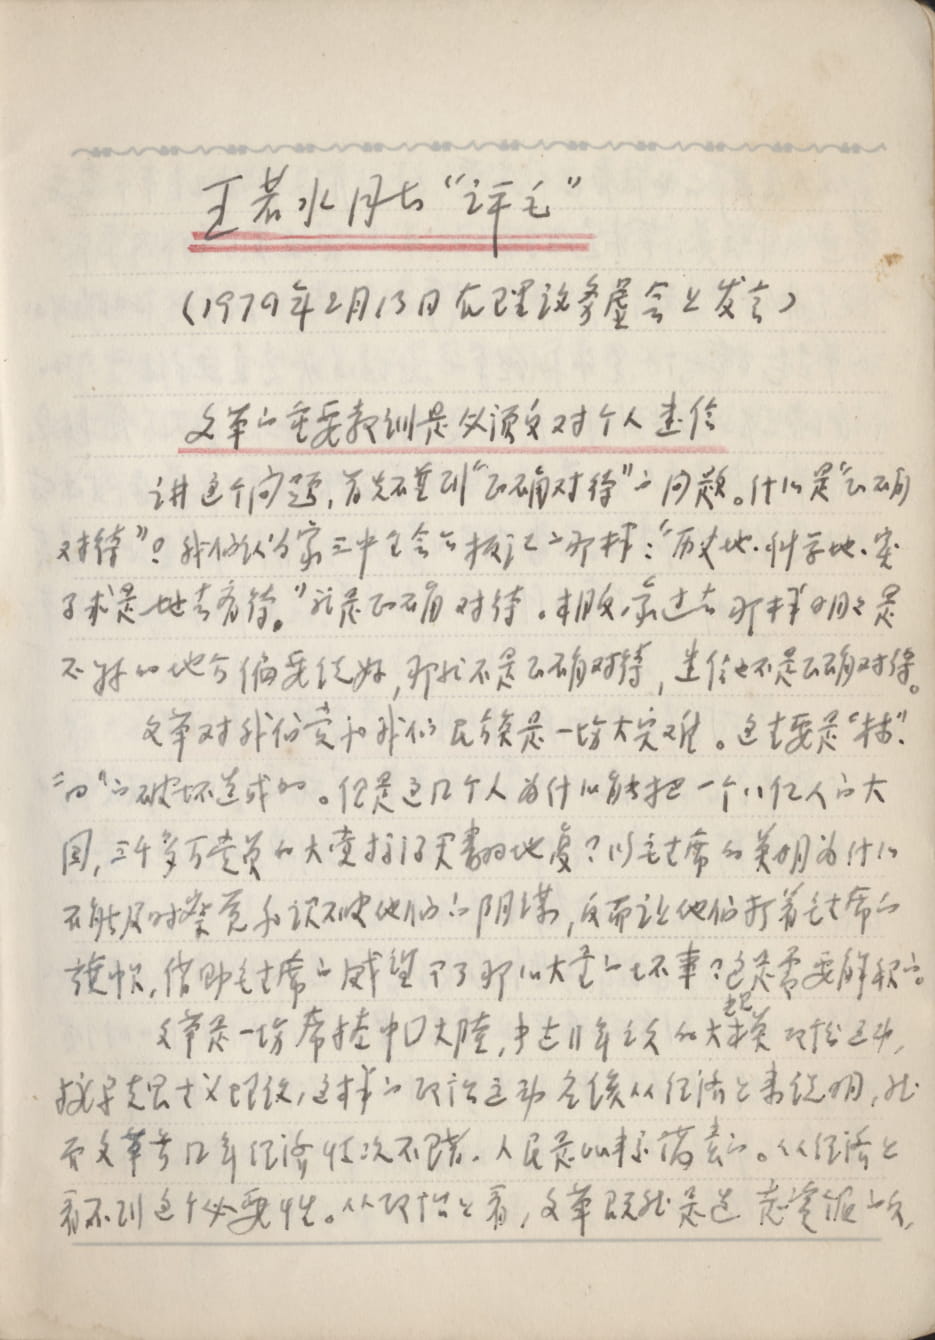 王若水同志“评毛”
(1979年2月13日在理论务虚会上发言)
文革的重要教训是必须反对个人迷信
讲这个问题,首先不要到“正确对待”的问题。什么是“正确
对待”?我们认为象三中全会公报讲的那样:“历史地、科学地、实
事求是地去看待。”就是正确对待。象过去那样明明是
不好的地方偏要说好,那就不是正确对待,迷信也不是正确对待。
文革对我们党和我们民族是一场大灾难。这主要是“林”、
“四”的破坏造成的。但是这几个人为什么能把一个八亿人的大
国,三千多万党员的大党搞得天翻地复?以毛主席的英明为什么
不能及时察觉和识破他们的阴谋,反而让他们打着毛主席的
旗帜,借助毛主席的威望干了那么大量的坏事?这是需要解释的。
文革是一场席捲中国大陆,历时11年之久的大规模政治运动,
按马克思主义理论,这样的政治运动应该从经济上来说明,然
而文革前几年经济情况不错,人民是比较满意的。从经济上
看不到这个必要性。从政治上看,文革既然是这